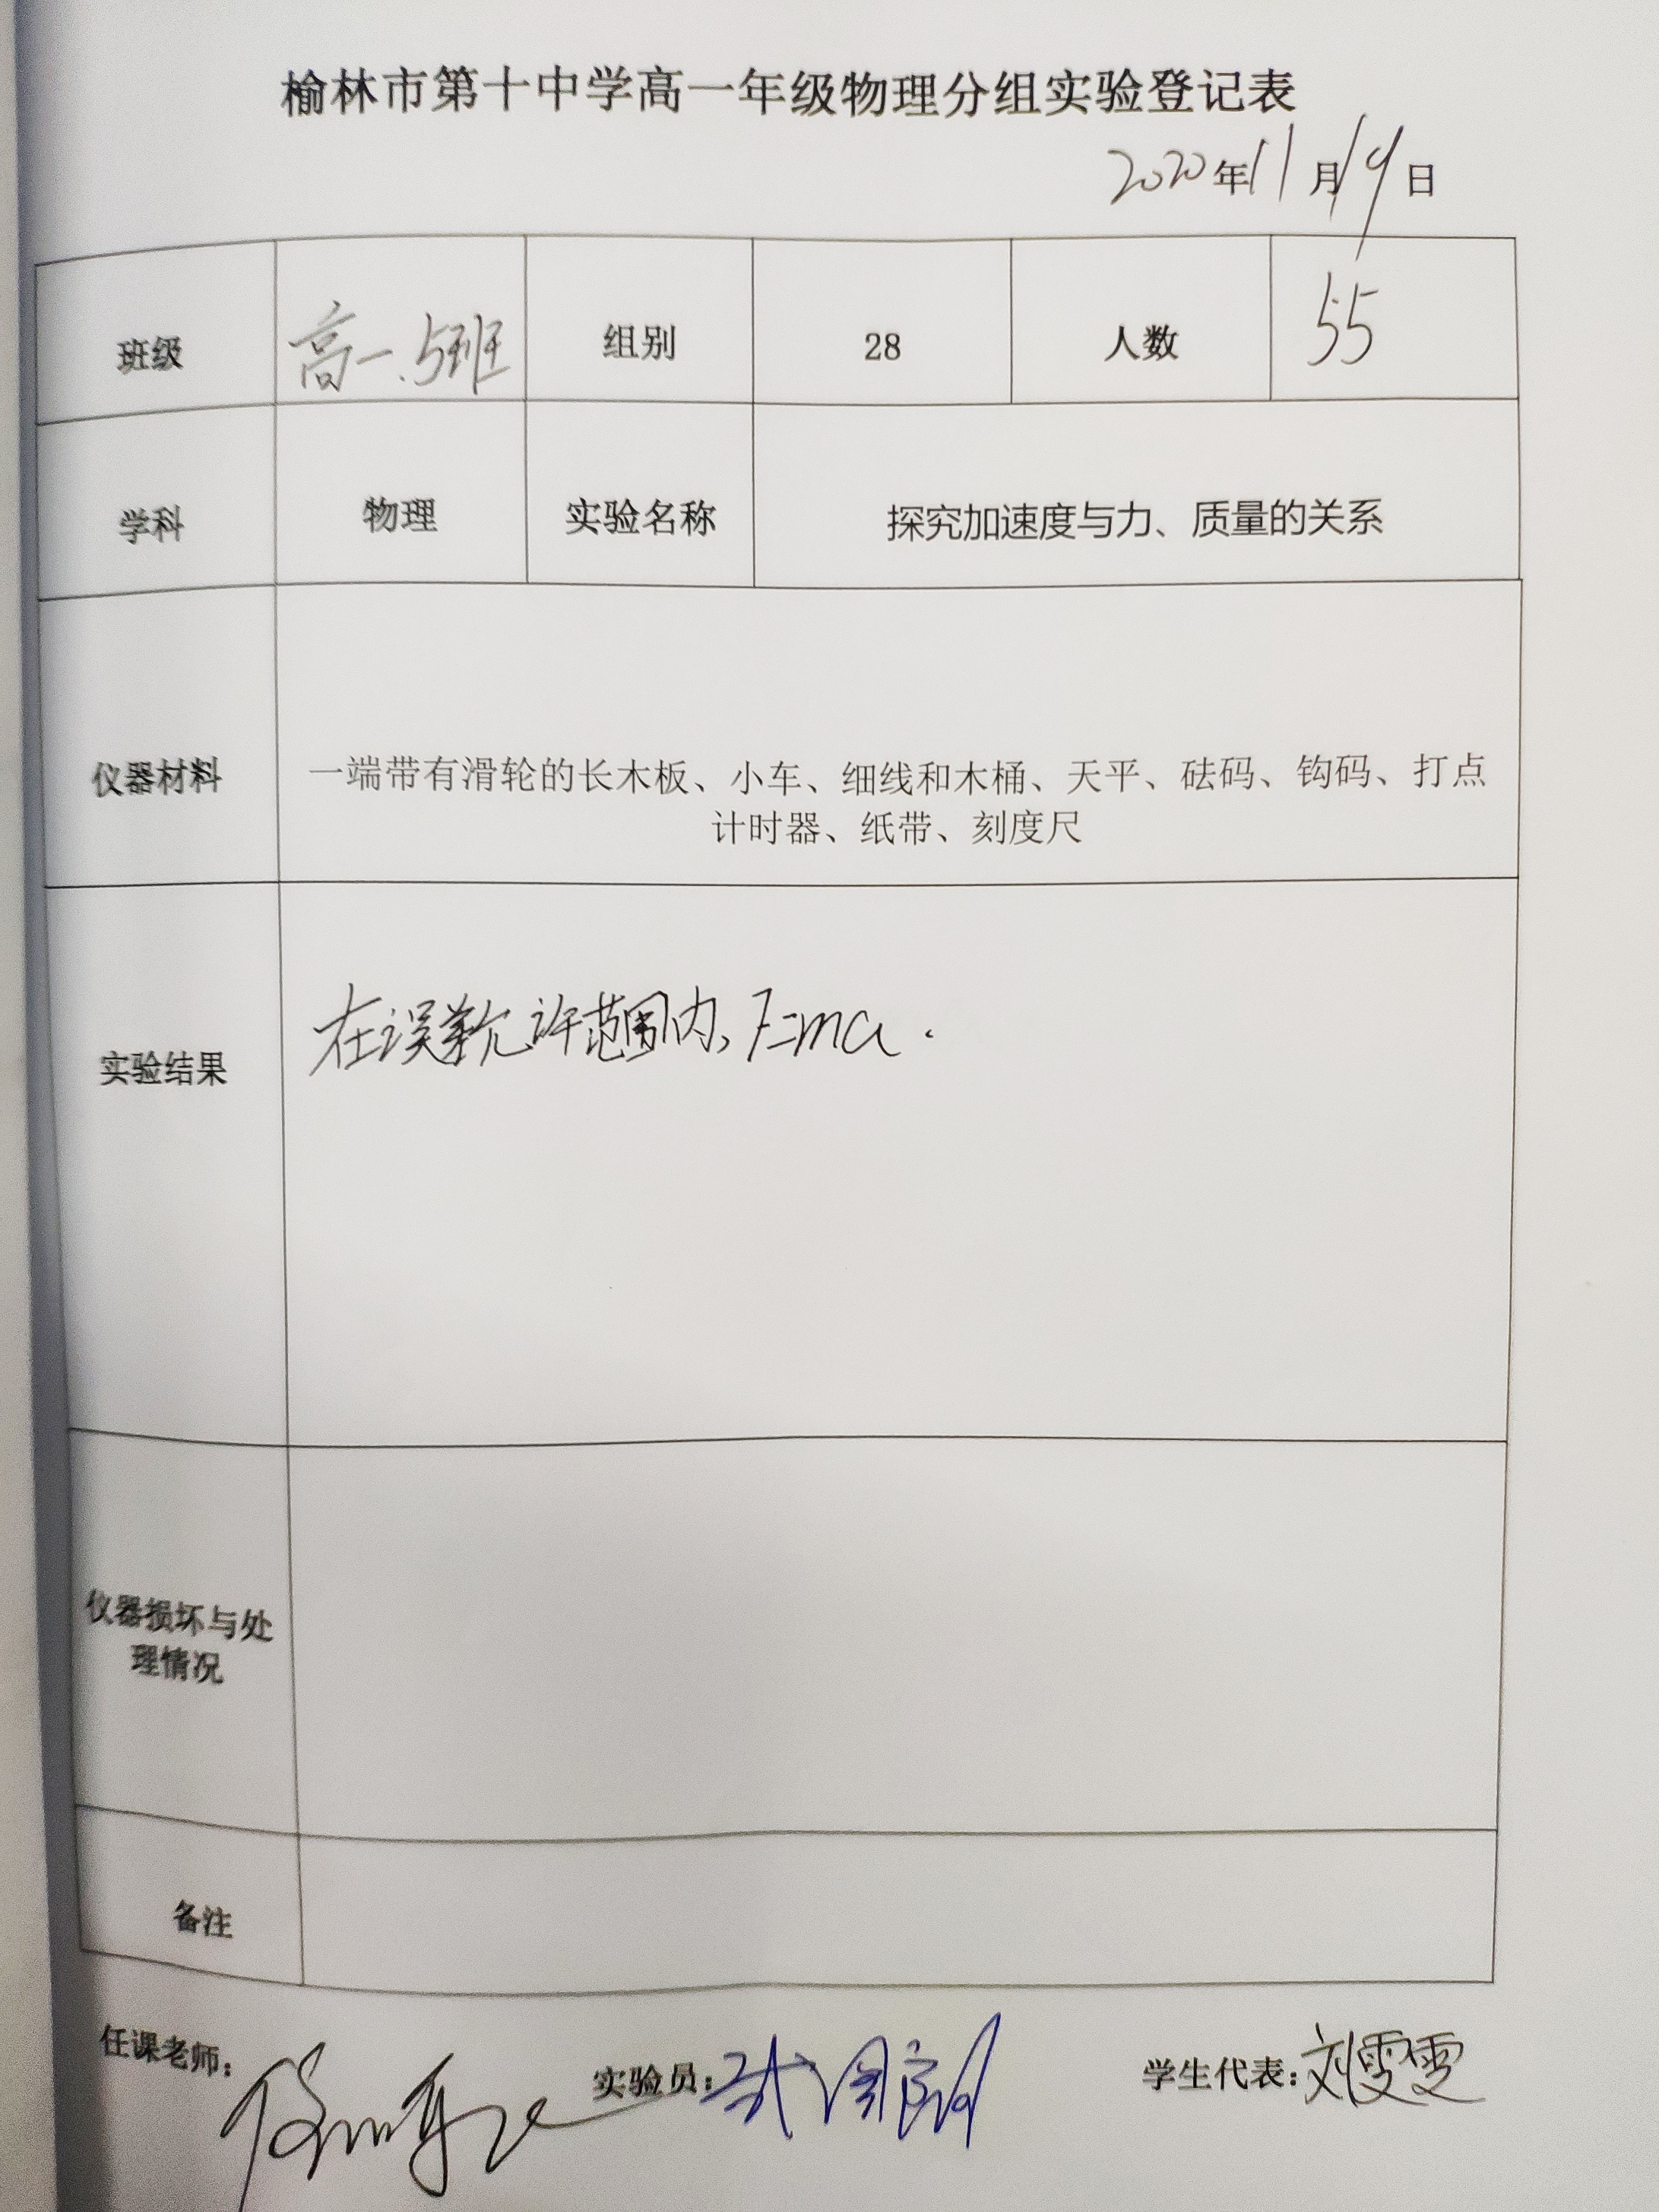 榆林市第十中学高一年级物理分组实验登记表
2020年11月19日
班级 高一.5班 组别 28 人数 55
学科 物理 实验名称 探究加速度与力、质量的关系
仪器材料 一端带有滑轮的长木板、小车、细线和木桶、天平、砝码、钩码、打点
计时器、纸带、刻度尺
实验结果 在误差允许范围内,F=ma.
仪器损坏与处
理情况
备注
任课老师: 实验员: 学生代表:刘雯雯